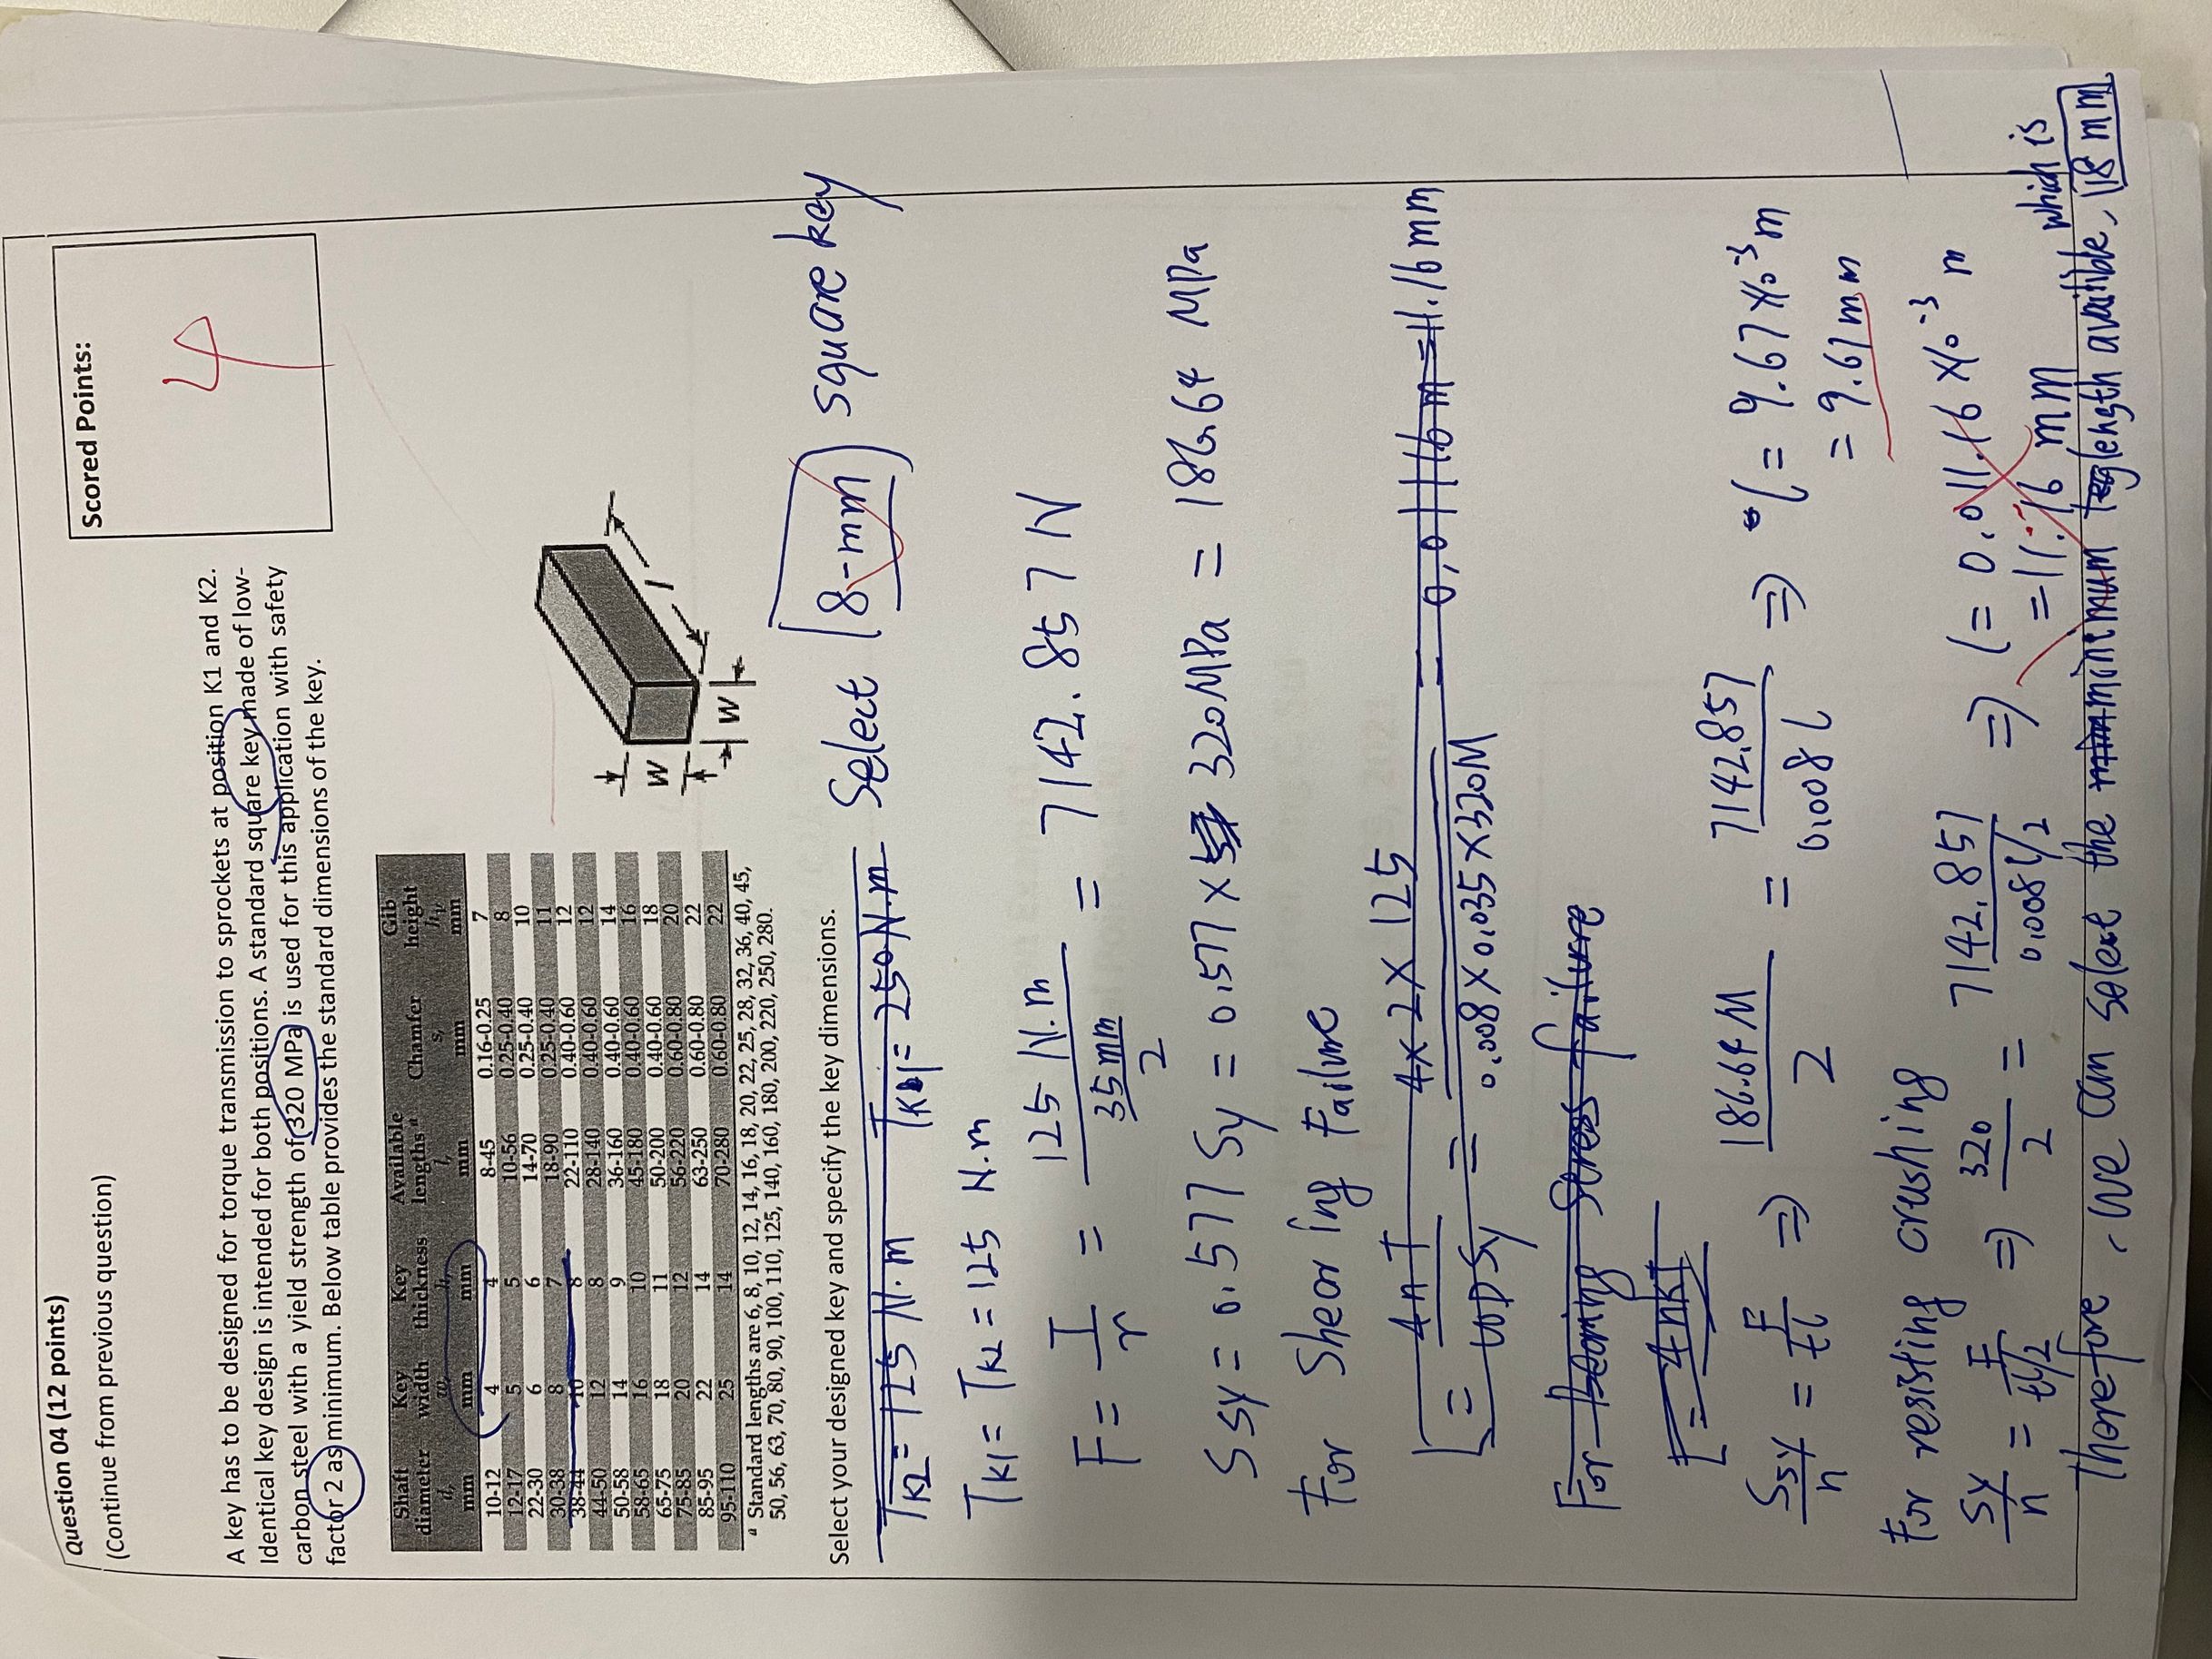 Question 04 (12 points)
(Continue from previous question)
Scored Points:
4
A key has to be designed for torque transmission to sprockets at position K1 and K2.
Identical key design is intended for both positions. A standard square key made of low-
carbon steel with a yield strength of 320 MPa is used for this application with safety
factor 2 as minimum. Below table provides the standard dimensions of the key.
Shaft diameter d, mm Key width w, mm Key thickness h, mm Available lengths a l, mm Chamfer s, mm Gib height hy mm
10-12 4 4 8-45 0.16-0.25 7
12-17 5 5 10-56 0.25-0.40 8
22-30 6 6 14-70 0.25-0.40 10
30-38 8 7 18-90 0.25-0.40 11
38-44 10 8 22-110 0.40-0.60 12
44-50 12 8 28-140 0.40-0.60 12
50-58 14 9 36-160 0.40-0.60 14
58-65 16 10 45-180 0.40-0.60 16
65-75 18 11 50-200 0.40-0.60 18
75-85 20 12 56-220 0.60-0.80 20
85-95 22 14 63-250 0.60-0.80 22
95-110 25 14 70-280 0.60-0.80 22
a Standard lengths are 6, 8, 10, 12, 14, 16, 18, 20, 22, 25, 28, 32, 36, 40, 45,
50, 56, 63, 70, 80, 90, 100, 110, 125, 140, 160, 180, 200, 220, 250, 280.
W
W
l
Select your designed key and specify the key dimensions.
Select 8-mm square key
TK2 = 125 N.m TK1 = 250 N.m
TK1 = TK2 = 125 N.m
F = T/r = 125 N.m / (35mm/2) = 7142.857 N
Ssy = 0.577 Sy = 0.577 × 320MPa = 186.64 MPa
For Shearing Failure
L = 4nT / wDSy = 4×2×125 / 0.008×0.035×320M = 0.01116 m = 11.16 mm
For Bearing Stress failure
L = 4nkT
Ssy/n = F/tl ⇒ 186.64M / 2 = 7142.857 / 0.008l ⇒ l = 9.67×10⁻³ m
= 9.67 mm
For resisting crushing
Sy/n = F/(tl/2) ⇒ 320/2 = 7142.857 / 0.008l/2 ⇒ l = 0.011.16×10⁻³ m
= 11.16 mm
Therefore, we can select the minimum length availible, which is 18 mm